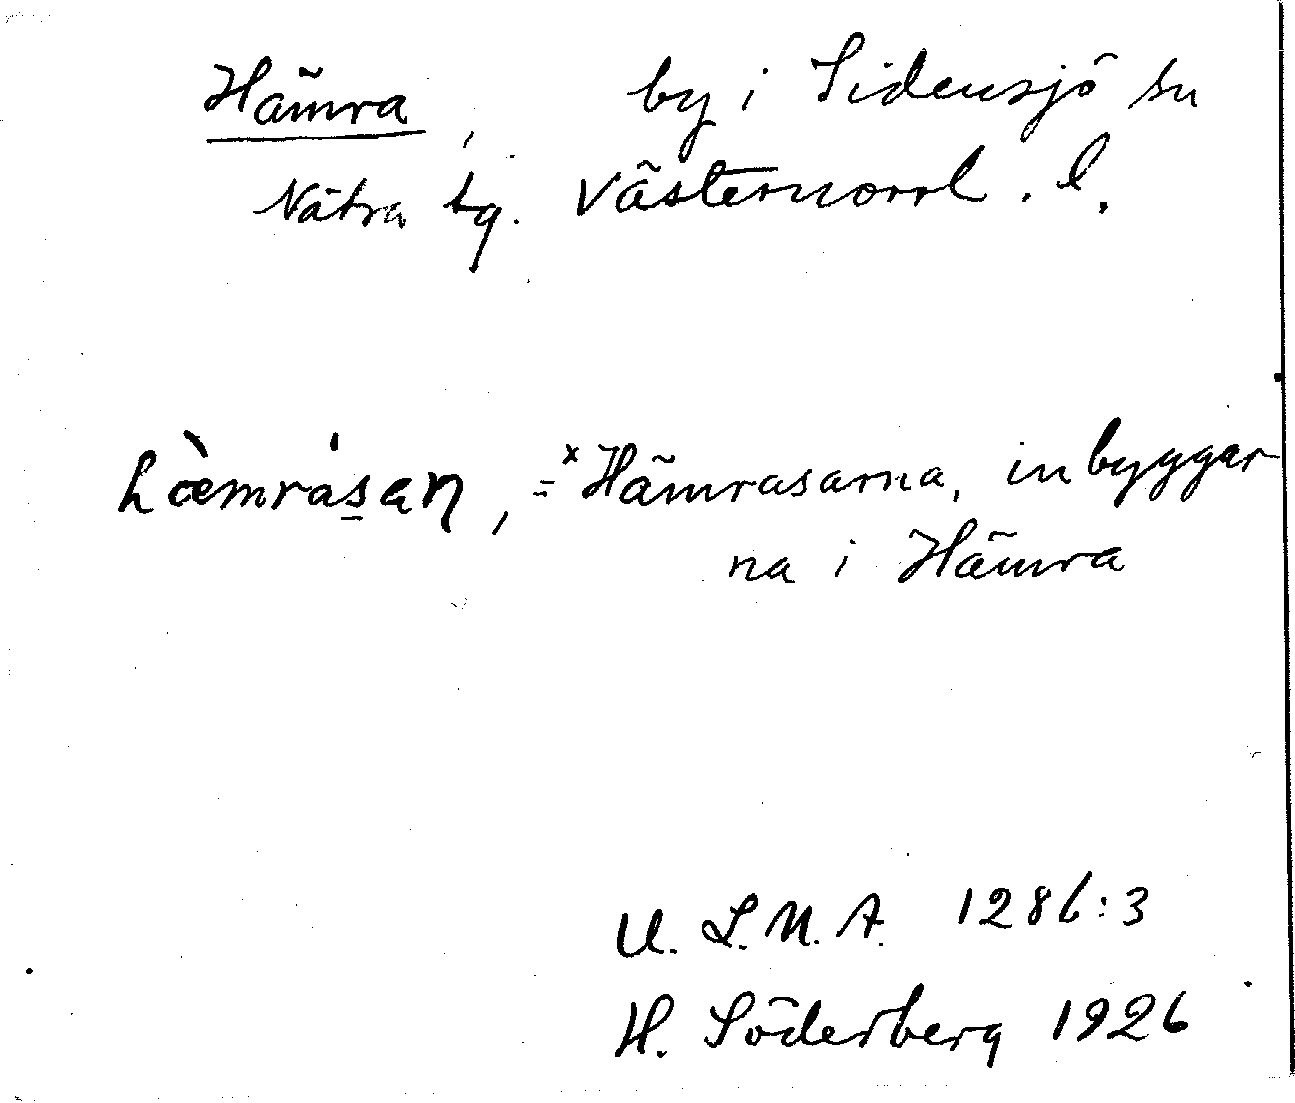 Hämra, by i Sidensjö sn
Nätra tg. Västernorrl. l.
hæ̀mrásan, = ˣHämrasarna, inbyggar
na i Hämra
U. L. M. A. 1286:3
H. Söderberg 1926